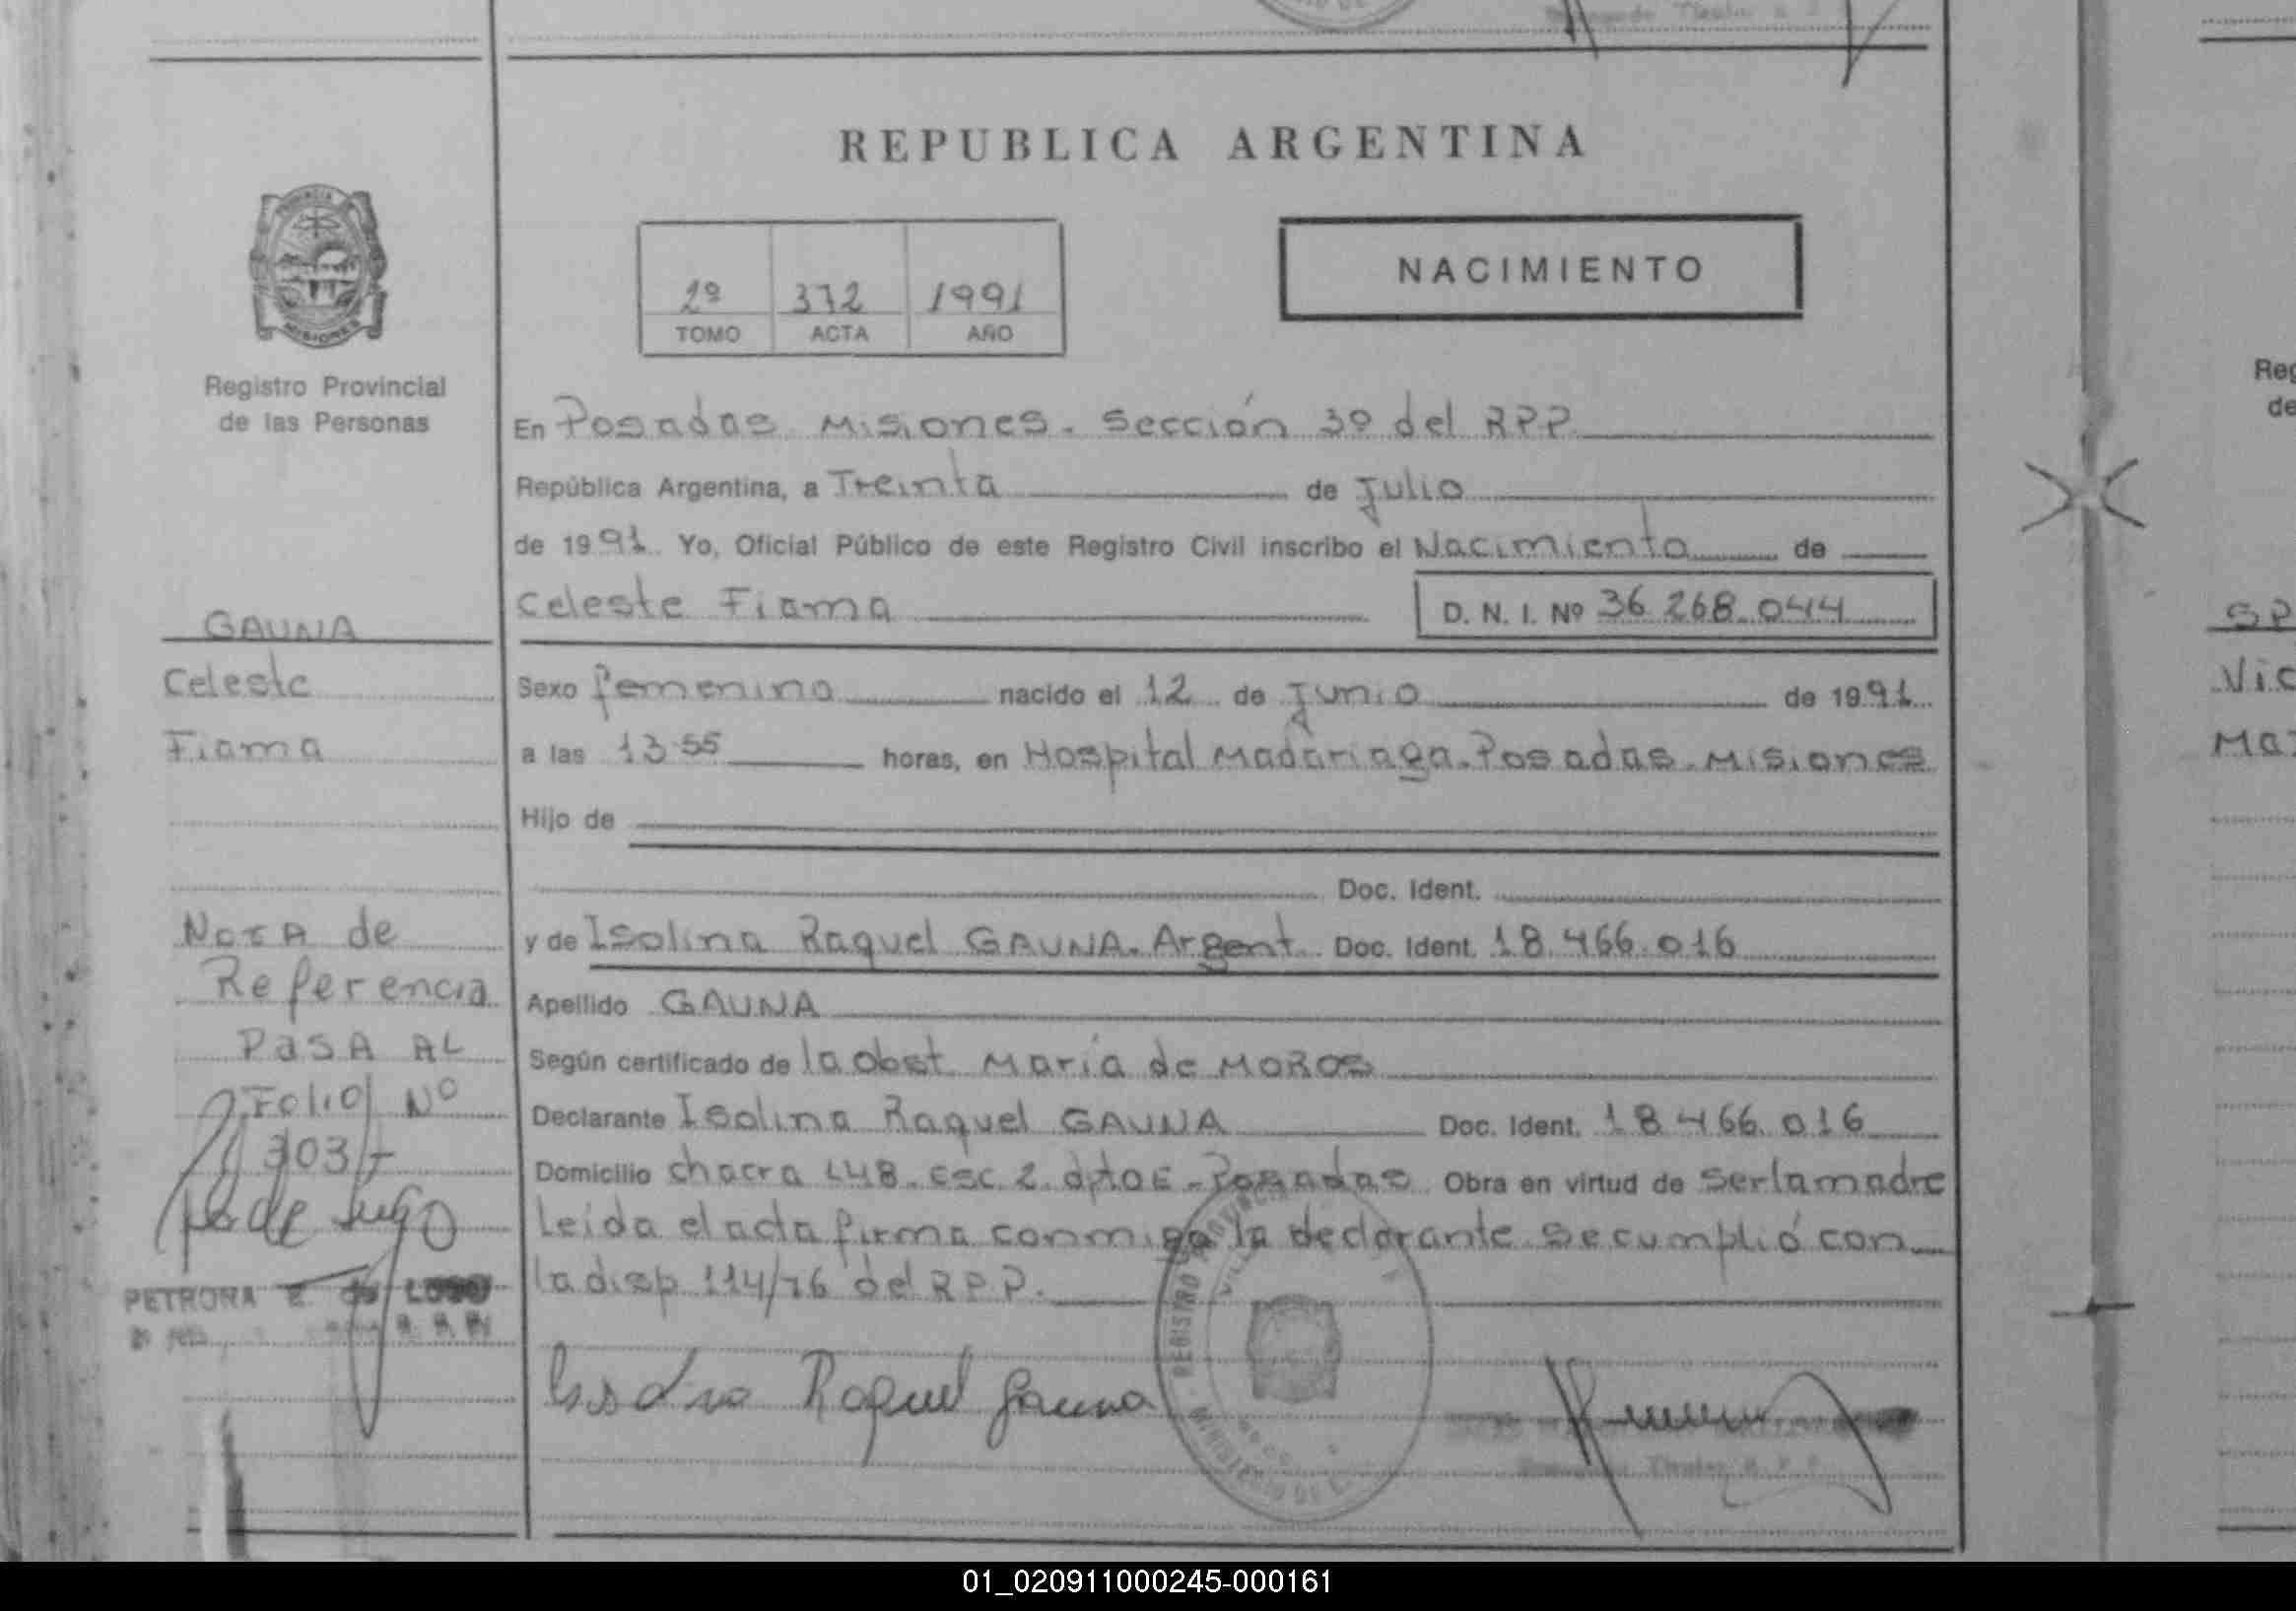 REPUBLICA ARGENTINA
NACIMIENTO
2º 372 1991
TOMO ACTA AÑO
Registro Provincial
de las Personas
MISIONES
En Posadas Misiones. Sección 3º del RPP
República Argentina, a Treinta de Julio
de 1991. Yo, Oficial Público de este Registro Civil inscribo el Nacimiento de
Celeste Fiama D. N. I. Nº 36.268.044
Sexo femenino nacido el 12 de Junio de 1991
a las 13.55 horas, en Hospital Madariaga. Posadas. Misiones
Hijo de
Doc. Ident.
y de Isolina Raquel GAUNA. Argent. Doc. Ident. 18.466.016
Apellido GAUNA
Según certificado de la obst. María de MOROS
Declarante Isolina Raquel GAUNA Doc. Ident. 18.466.016
Domicilio chacra 148. esc 2. dpto E - Posadas. Obra en virtud de ser la madre
Leída el acta firma conmigo la declarante. Se cumplió con
la disp 114/76 del R.P.P.
Raquel Gauna
GAUNA
Celeste
Fiama
NOTA de
Referencia
PASA AL
Folio Nº
303
PETRONA E. de LUGO
REGISTRO PROVINCIAL
MINISTERIO DE
Titular R. P. P.
Reg
de
Vic
Ma
01_020911000245-000161